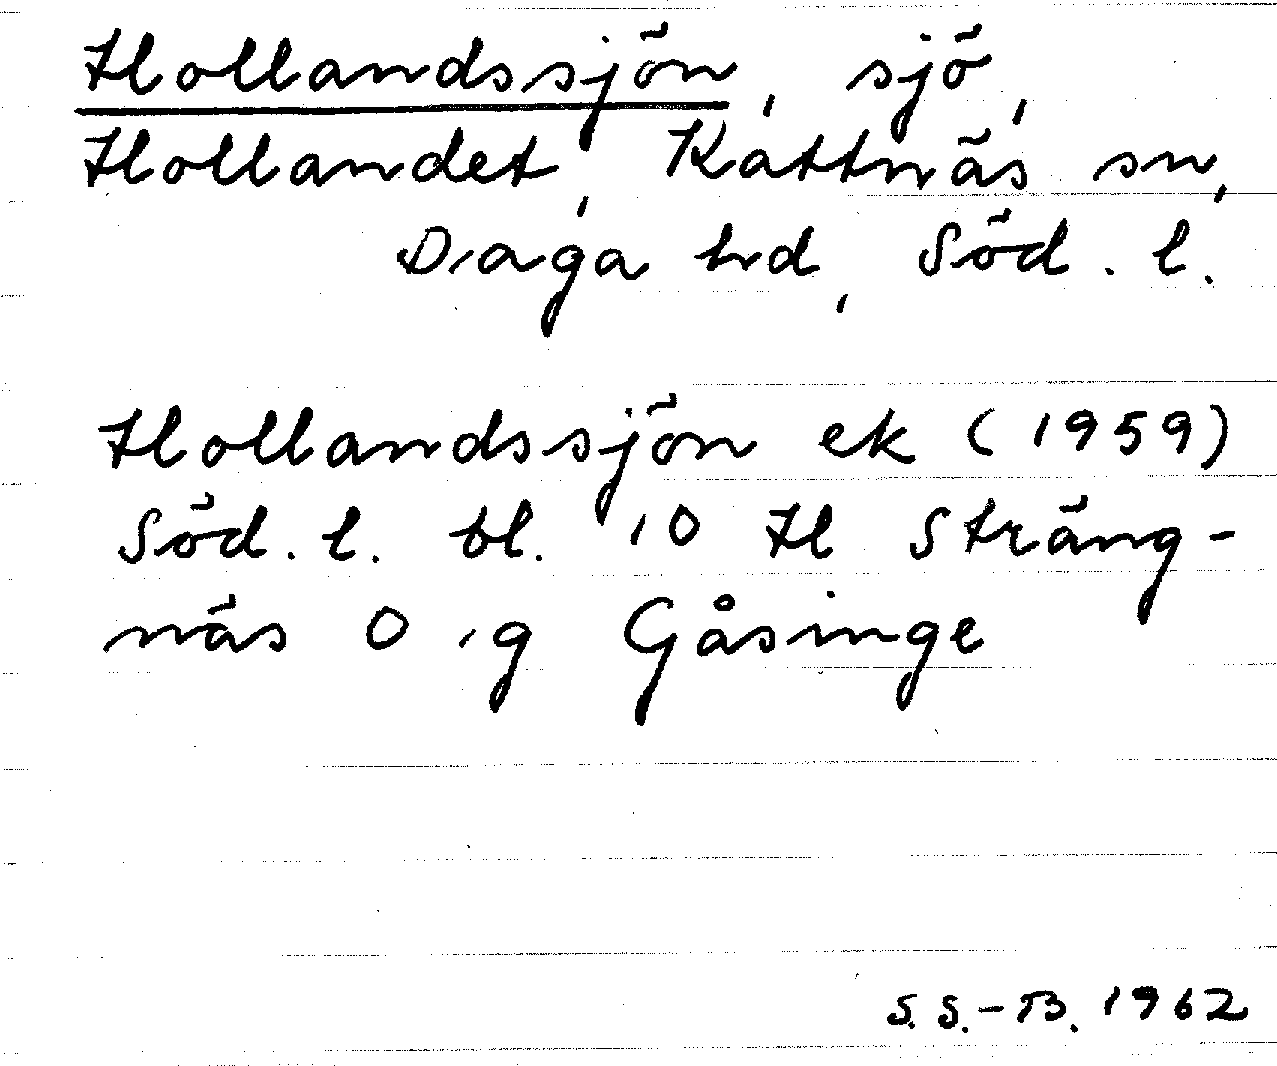 Hollandssjön, sjö,
Hollandet, Kattnäs sn,
Daga hd, Söd. l.
Hollandssjön ek (1959)
Söd. l. bl. 10 H Sträng-
näs O ig Gåsinge
S. S.-B. 1962